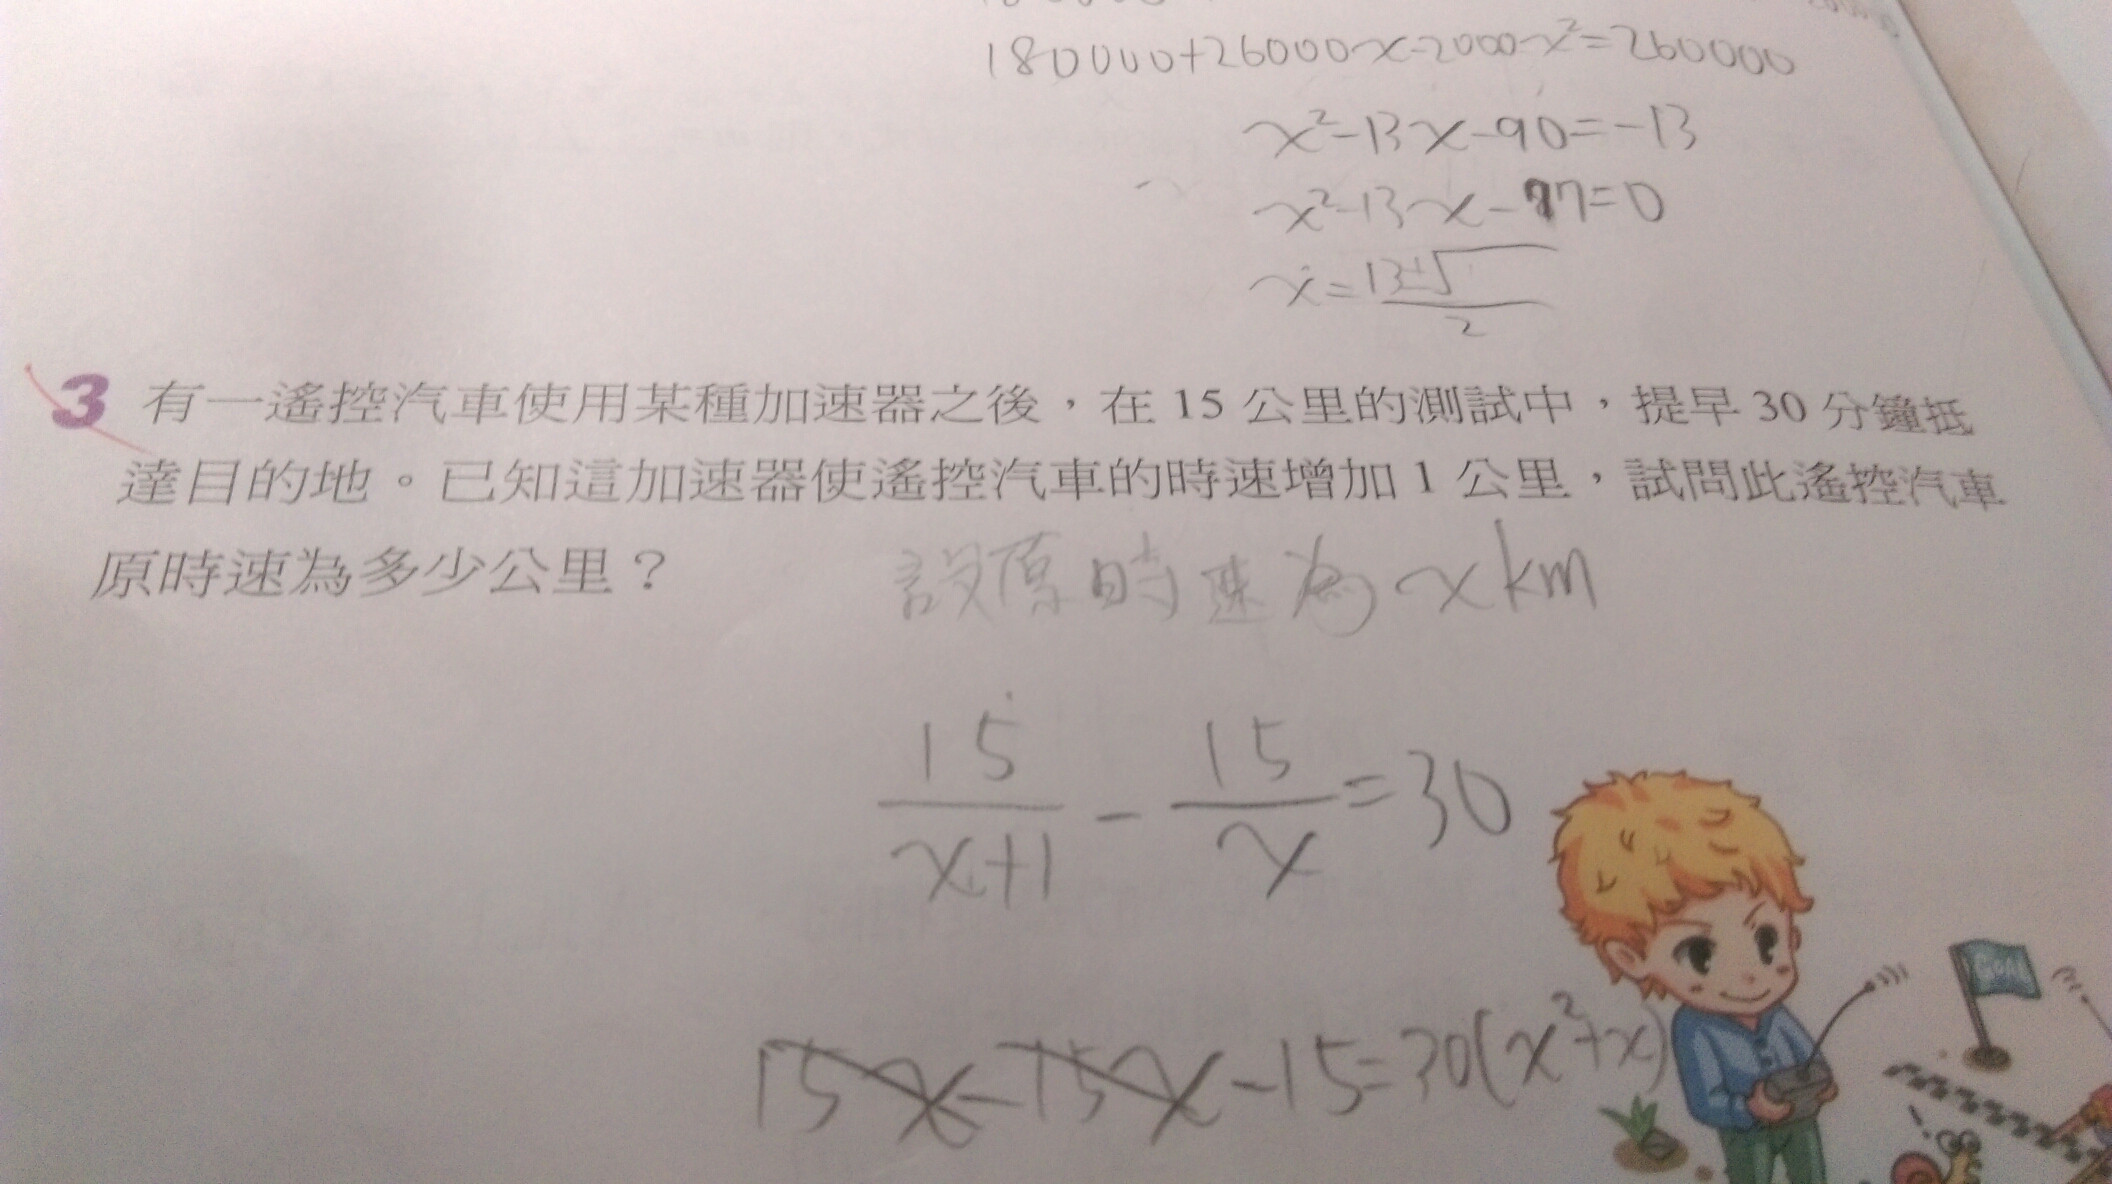 180000+26000x-2000x²=260000
x²-13x-90=-13
x²-13x-77=0
x=13±√
2
3 有一遙控汽車使用某種加速器之後，在 15 公里的測試中，提早 30 分鐘抵
達目的地。已知這加速器使遙控汽車的時速增加 1 公里，試問此遙控汽車
原時速為多少公里？
設原時速為 x km
15/x+1 - 15/x =30
GOAL
15x-15x-15=30(x²+x)